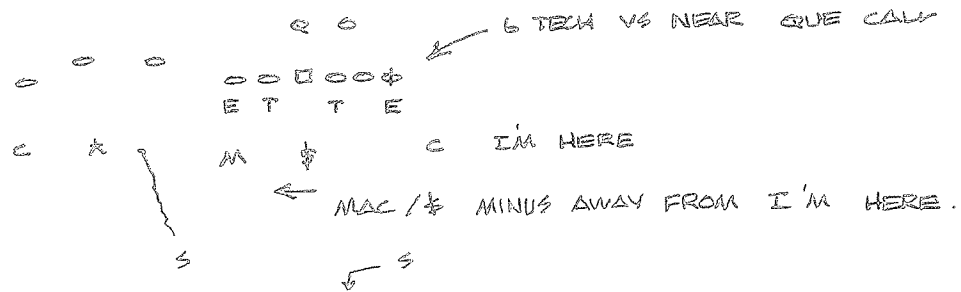 Q O 6 TECH VS NEAR QUE CALL
E T T E
C * M $ C I'M HERE
MAC / $ MINUS AWAY FROM I'M HERE.
S S